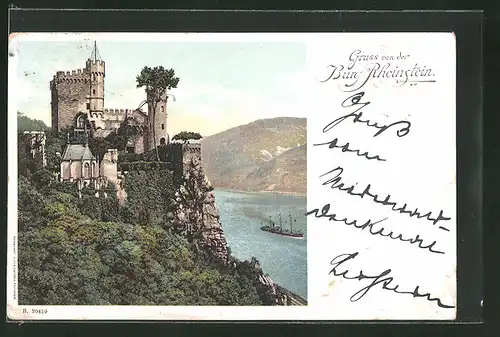 Gruss von der
Burg Rheinstein.
Gruß
vom
Niederwald-
denkmal
B. 20459